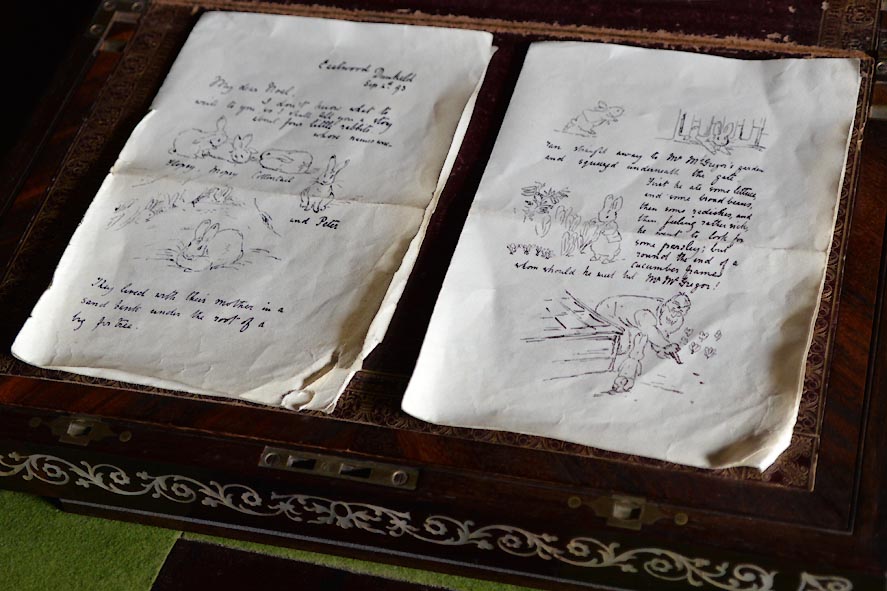 Eastwood Dunkeld
Sep 4th 93
My dear Noel,
I don't know what to
write to you so I shall tell you a story
about four little rabbits
whose names were
Flopsy Mopsy Cottontail
and Peter
They lived with their mother in a
sand bank under the root of a
big fir tree.
ran straight away to Mr McGregor's garden
and squeezed underneath the gate.
First he ate some lettuce,
and some broad beans,
then some radishes, and
then, feeling rather sick,
he went to look for
some parsley; but
round the end of a
cucumber frame
whom should he meet but Mr McGregor!